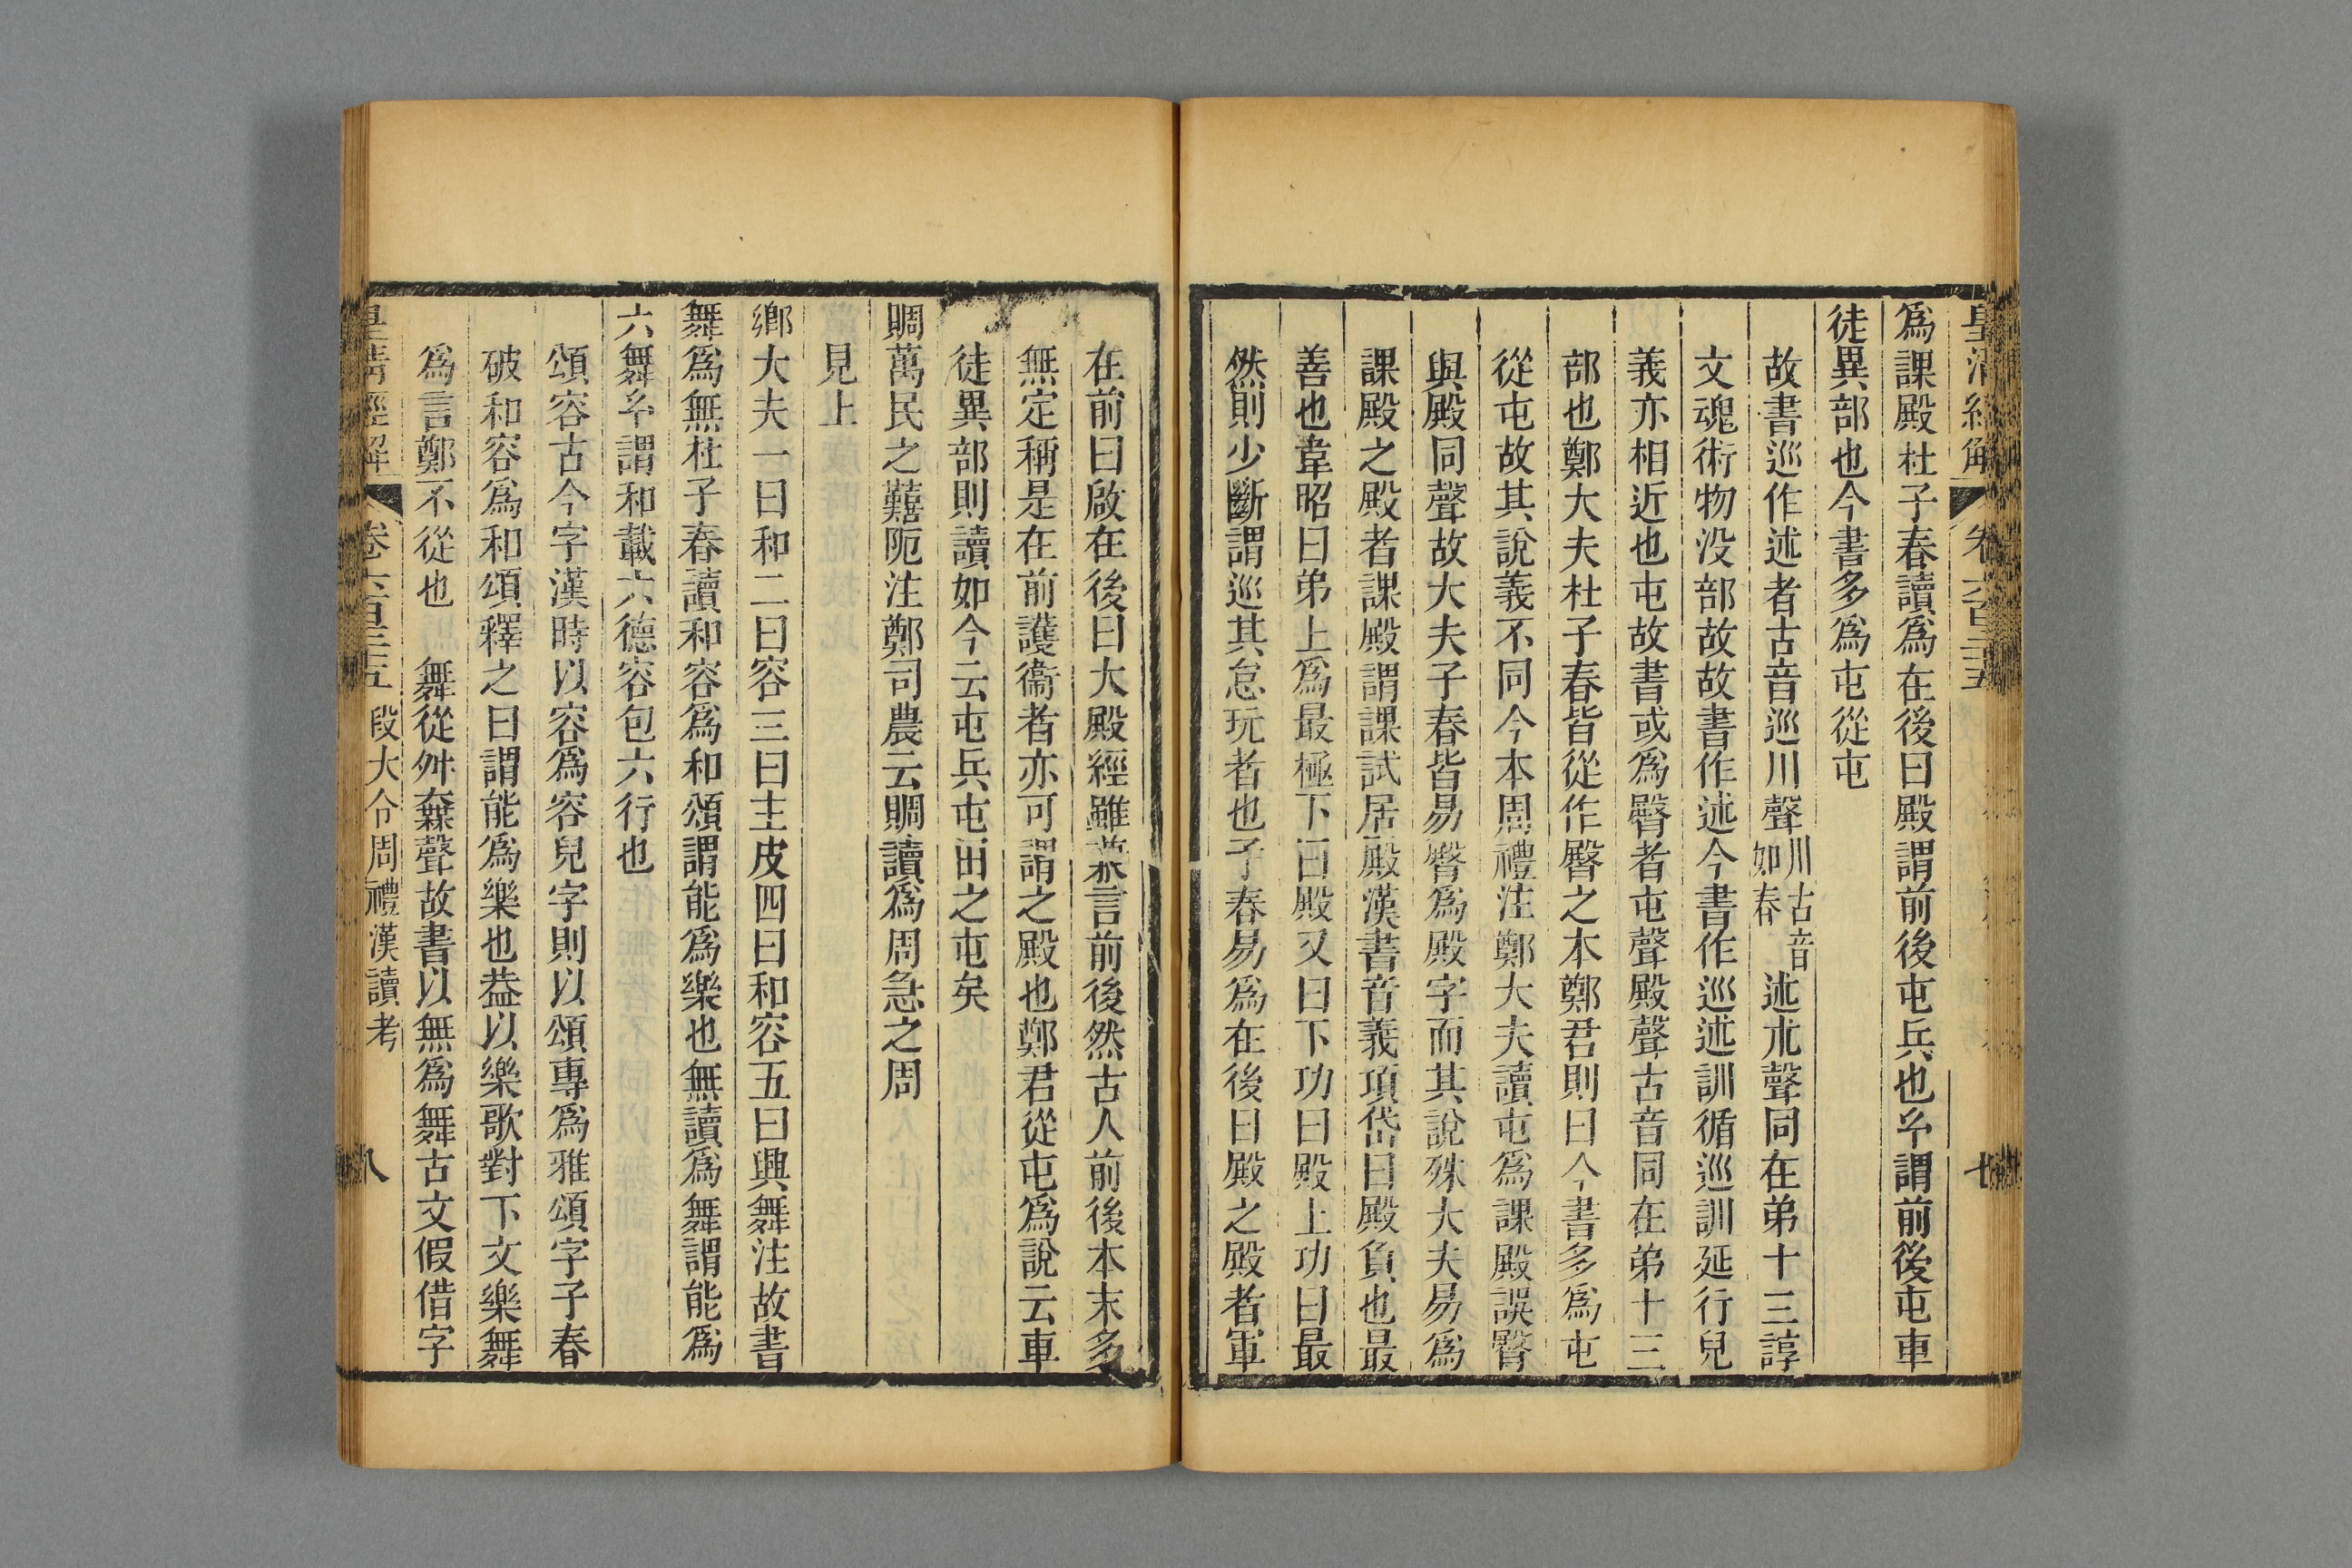 皇清經解 卷六百三十五 七
爲課殿杜子春讀爲在後曰殿謂前後屯兵也㕕謂前後屯車
徒異部也今書多爲屯從屯
故書巡作述者古音巡川聲川古音如春述朮聲同在弟十三諄
文魂術物没部故故書作述今書作巡述訓循巡訓延行皃
義亦相近也屯故書或爲臀者屯聲殿聲古音同在弟十三
部也鄭大夫杜子春皆從作臀之本鄭君則曰今書多爲屯
從屯故其說義不同今本周禮注鄭大夫讀屯爲課殿誤臀
與殿同聲故大夫子春皆易臀爲殿字而其說殊大夫易爲
課殿之殿者課殿謂課試居殿漢書音義項岱曰殿負也最
善也韋昭曰弟上爲最極下曰殿又曰下功曰殿上功曰最
然則少斷謂巡其怠玩者也子春易爲在後曰殿之殿者軍
在前曰啟在後曰大殿經雖兼言前後然古人前後本末多
無定稱是在前護衞者亦可謂之殿也鄭君從屯爲說云車
徒異部則讀如今云屯兵屯田之屯矣
賙萬民之囏阨注鄭司農云賙讀爲周急之周
見上
鄉大夫一曰和二曰容三曰主皮四曰和容五曰興舞注故書
舞爲無杜子春讀和容爲和頌謂能爲樂也無讀爲舞謂能爲
六舞㕕謂和載六德容包六行也
頌容古今字漢時以容爲容皃字則以頌專爲雅頌字子春
破和容爲和頌釋之曰謂能爲樂也葢以樂歌對下文樂舞
爲言鄭不從也 舞從舛䍢聲故書以無爲舞古文假借字
皇清經解 卷六百三十五 段大令周禮漢讀考 八